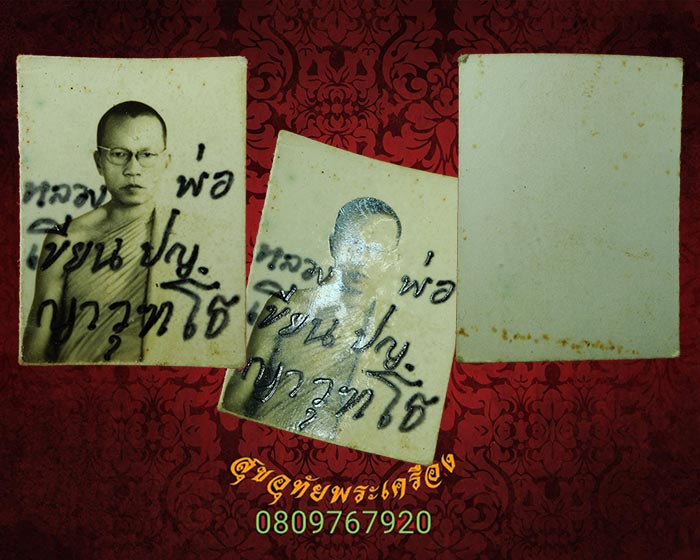 หลวง พ่อ
เขียน ปญฺ
ญาวุฑโธ
หลวง พ่อ
เขียน ปญฺ
ญาวุฑโธ
สุขอุทัยพระเครื่อง
0809767920